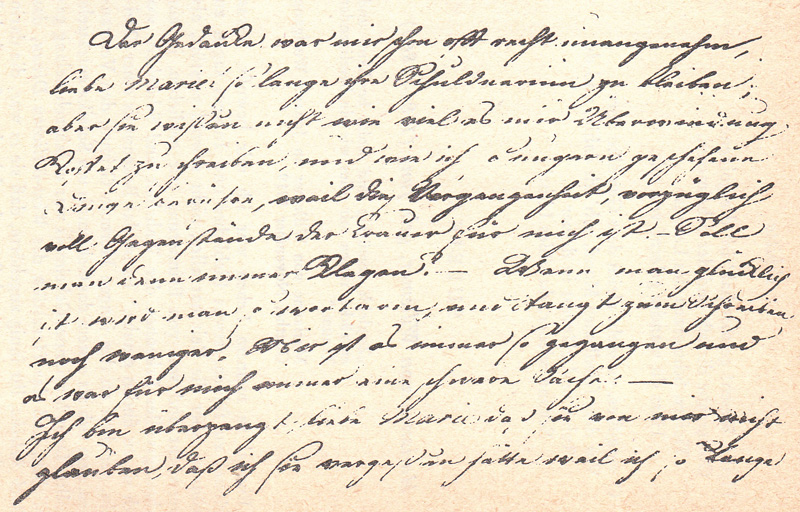 Der Gedanke war mir schon oft recht unangenehm,
liebe Marie! so lange ihre Schuldnerinn zu bleiben;
aber sie wissen nicht wie viel es mir Überwindung
kostet zu schreiben, und wie ich so ungern geschehene
Dinge berühre, weil die Vergangenheit, vorzüglich
voll Gegenstände der Trauer für mich ist. – Soll
man denn immer klagen? – Wenn man glücklich
ist wird man so wortarm, und taugt zum Schreiben
noch weniger. Mir ist es immer so gegangen und
es war für mich immer eine schwere Sache. —
Ich bin überzeugt, liebe Marie daß sie von mir nicht
glauben, daß ich sie vergessen hätte weil ich so lange